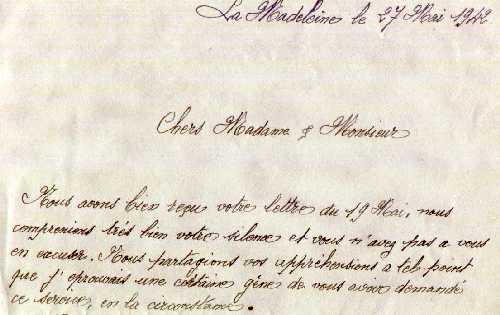 La Madeleine le 27 Mai 1942
Chers Madame & Monsieur
Nous avons bien reçu votre lettre du 19 Mai, nous
comprenions très bien votre silence et vous n'avez pas a vous
en excuser. Nous partagions vos appréhensions a tel point
que j'éprouvais une certaine gêne de vous avoir demandé
ce service, en la circonstance.